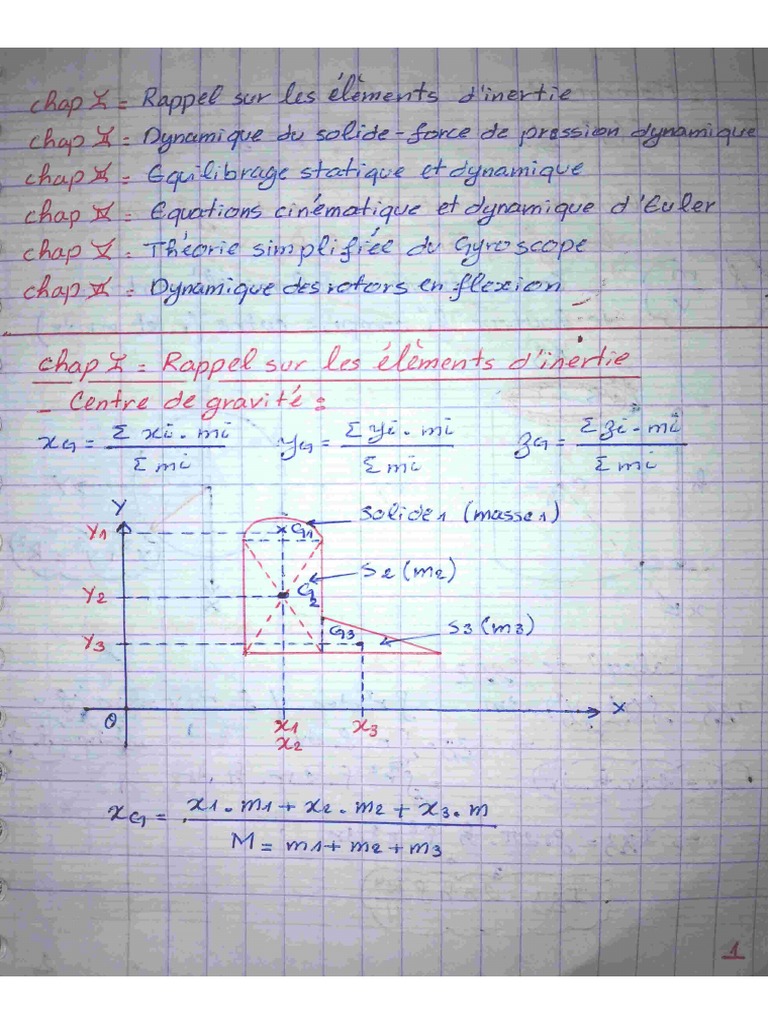 chap I = Rappel sur les éléments d'inertie
chap II = Dynamique du solide - force de pression dynamique
chap III = Equilibrage statique et dynamique
chap IV = Equations cinématique et dynamique d'Euler
chap V = Théorie simplifiée du Gyroscope
chap VI = Dynamique des rotors en flexion
chap I = Rappel sur les éléments d'inertie
- Centre de gravité :
xG = Σ xi . mi / Σ mi yG = Σ yi . mi / Σ mi zG = Σ zi . mi / Σ mi
Y
Solide1 (masse1)
Y1 G1
S2 (m2)
Y2 G2
S3 (m3)
Y3 G3
O X
x1 x3
x2
xG = x1 . m1 + x2 . m2 + x3 . m / M = m1 + m2 + m3
1